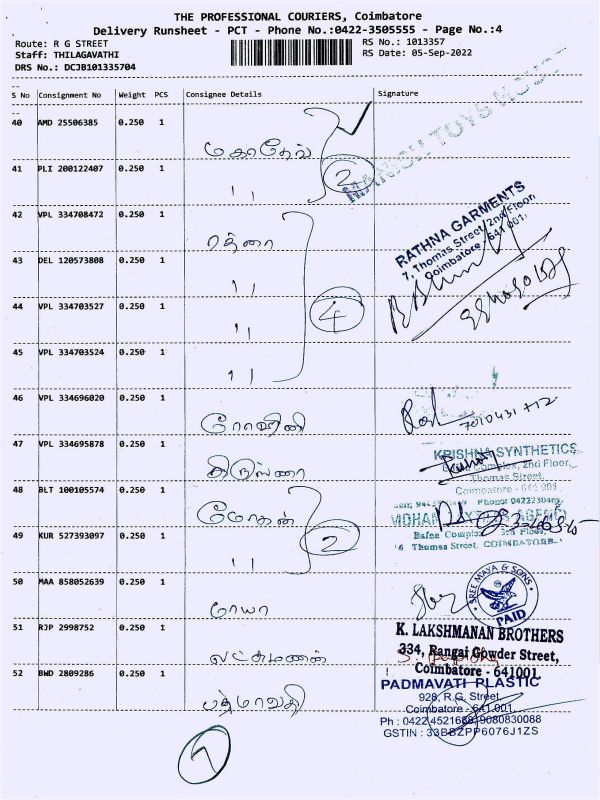 THE PROFESSIONAL COURIERS, Coimbatore
Delivery Runsheet - PCT - Phone No.:0422-3505555 - Page No.:4
Route: R G STREET
RS No.: 1013357
Staff: THILAGAVATHI
RS Date: 05-Sep-2022
DRS No.: DCJB101335704
S No Consignment No Weight PCS Consignee Details Signature
40 AMD 25506385 0.250 1
மகாதேவ்
2
41 PLI 200122407 0.250 1
"
42 VPL 334708472 0.250 1
ரத்னா
RATHNA GARMENTS
7, Thomas Street, 2nd Floor,
Coimbatore - 641 001.
43 DEL 120573808 0.250 1
"
44 VPL 334703527 0.250 1
"
4
45 VPL 334703524 0.250 1
"
46 VPL 334696020 0.250 1
ரோஹிணி
47 VPL 334695878 0.250 1
கிருஷ்ணா
KRISHNA SYNTHETICS
Complex, 2nd Floor,
Thomas Street,
Coimbatore - 641 001.
48 BLT 100105574 0.250 1
மோகன்
MOHAN
49 KUR 527393097 0.250 1
"
2
Bafna Complex 3rd Floor,
6 Thomas Street, COIMBATORE-
50 MAA 858052639 0.250 1
மாயா
SREE MAYA & SONS
PAID
51 RJP 2998752 0.250 1
லட்சுமணன்
K. LAKSHMANAN BROTHERS
334, Rangai Gowder Street,
Coimbatore - 641001.
52 BWD 2809286 0.250 1
பத்மாவதி
PADMAVATI PLASTIC
928, R.G. Street,
Coimbatore - 641 001.
GSTIN : 33BBZPP6076J1ZS
7